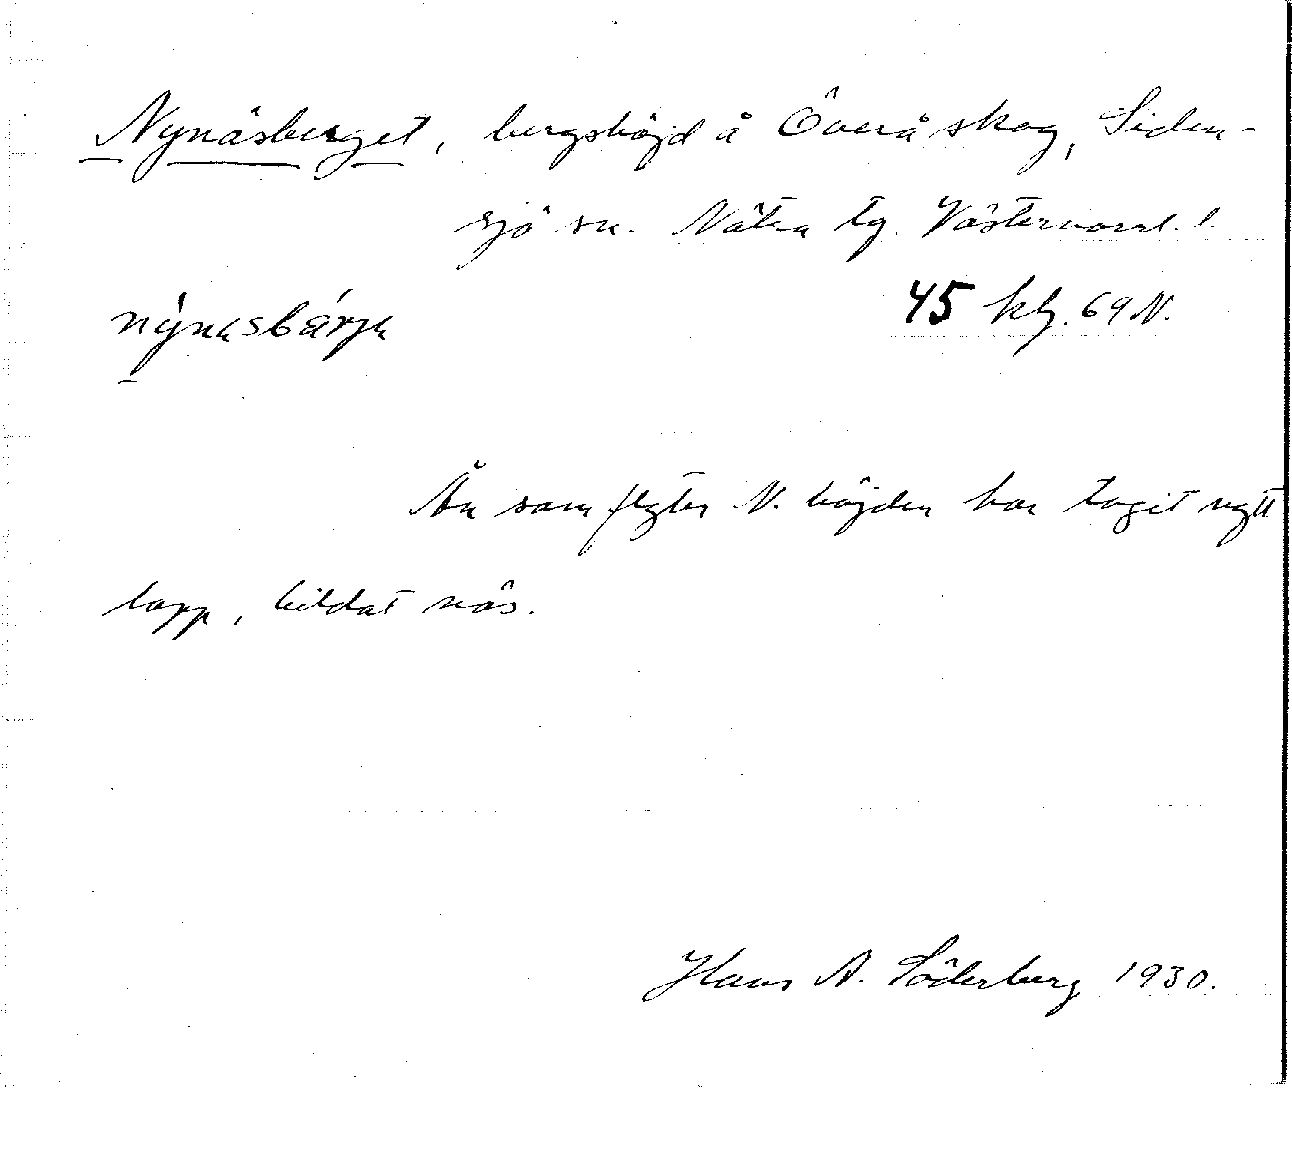 Nynäsberget, bergshöjd å Överå skog, Siden-
sjö sn. Nätra tg. Västernorrl. l.
45 kbl. 69 N.
Ån som flyter N. höjden har tagit nytt
lopp, bildat näs.
Hans A. Söderberg 1930.